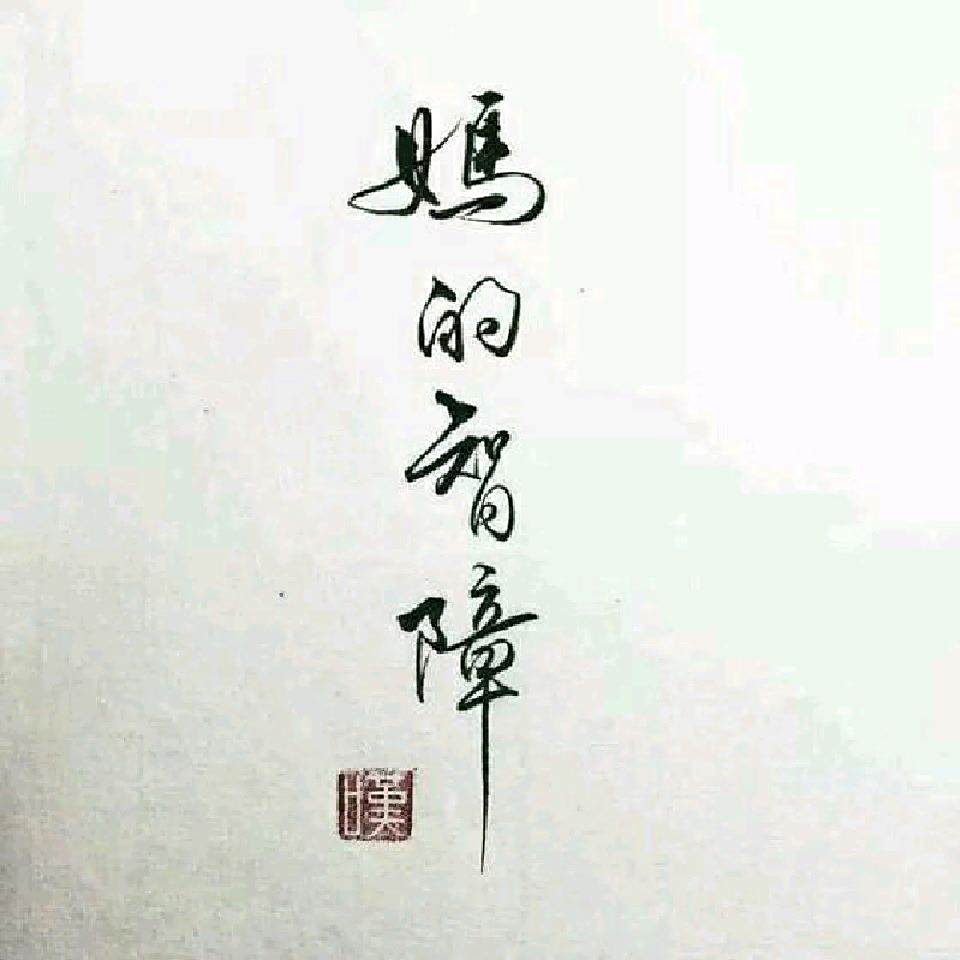 媽的智障
暵